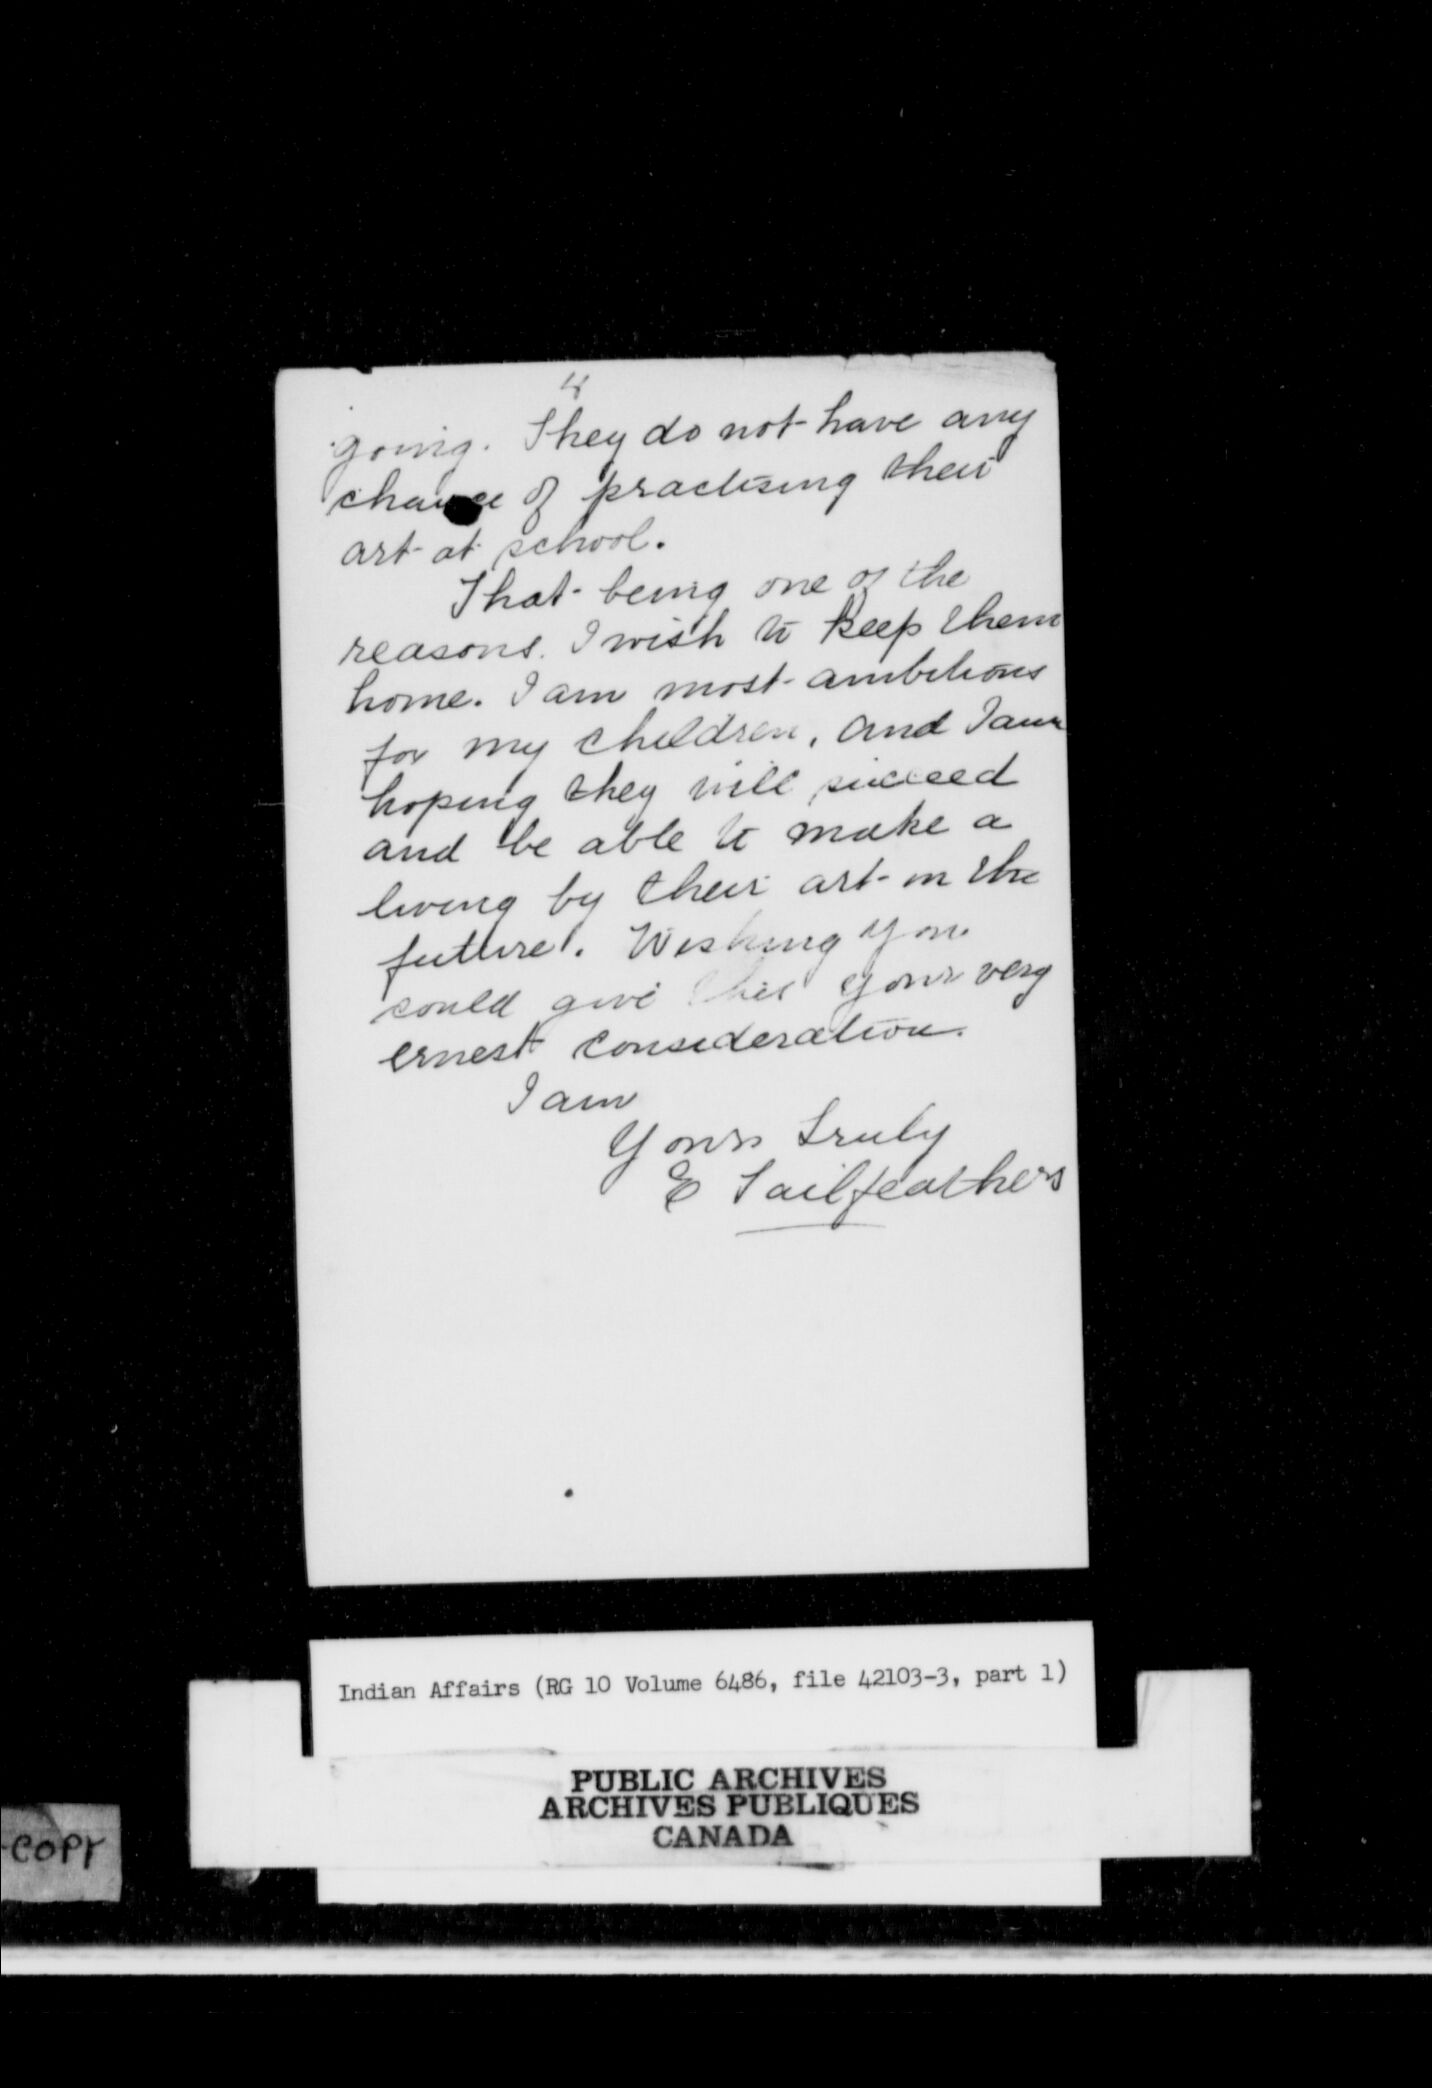 4
going. They do not have any
chance of practising their
art at school.
That being one of the
reasons. I wish to keep them
home. I am most ambitious
for my children, and I am
hoping they will succeed
and be able to make a
living by their art in the
future. Wishing you
could give this your very
ernest consideration.
I am
Yours Truly
E Tailfeathers
Indian Affairs (RG 10 Volume 6486, file 42103-3, part 1)
PUBLIC ARCHIVES
ARCHIVES PUBLIQUES
CANADA
COPY